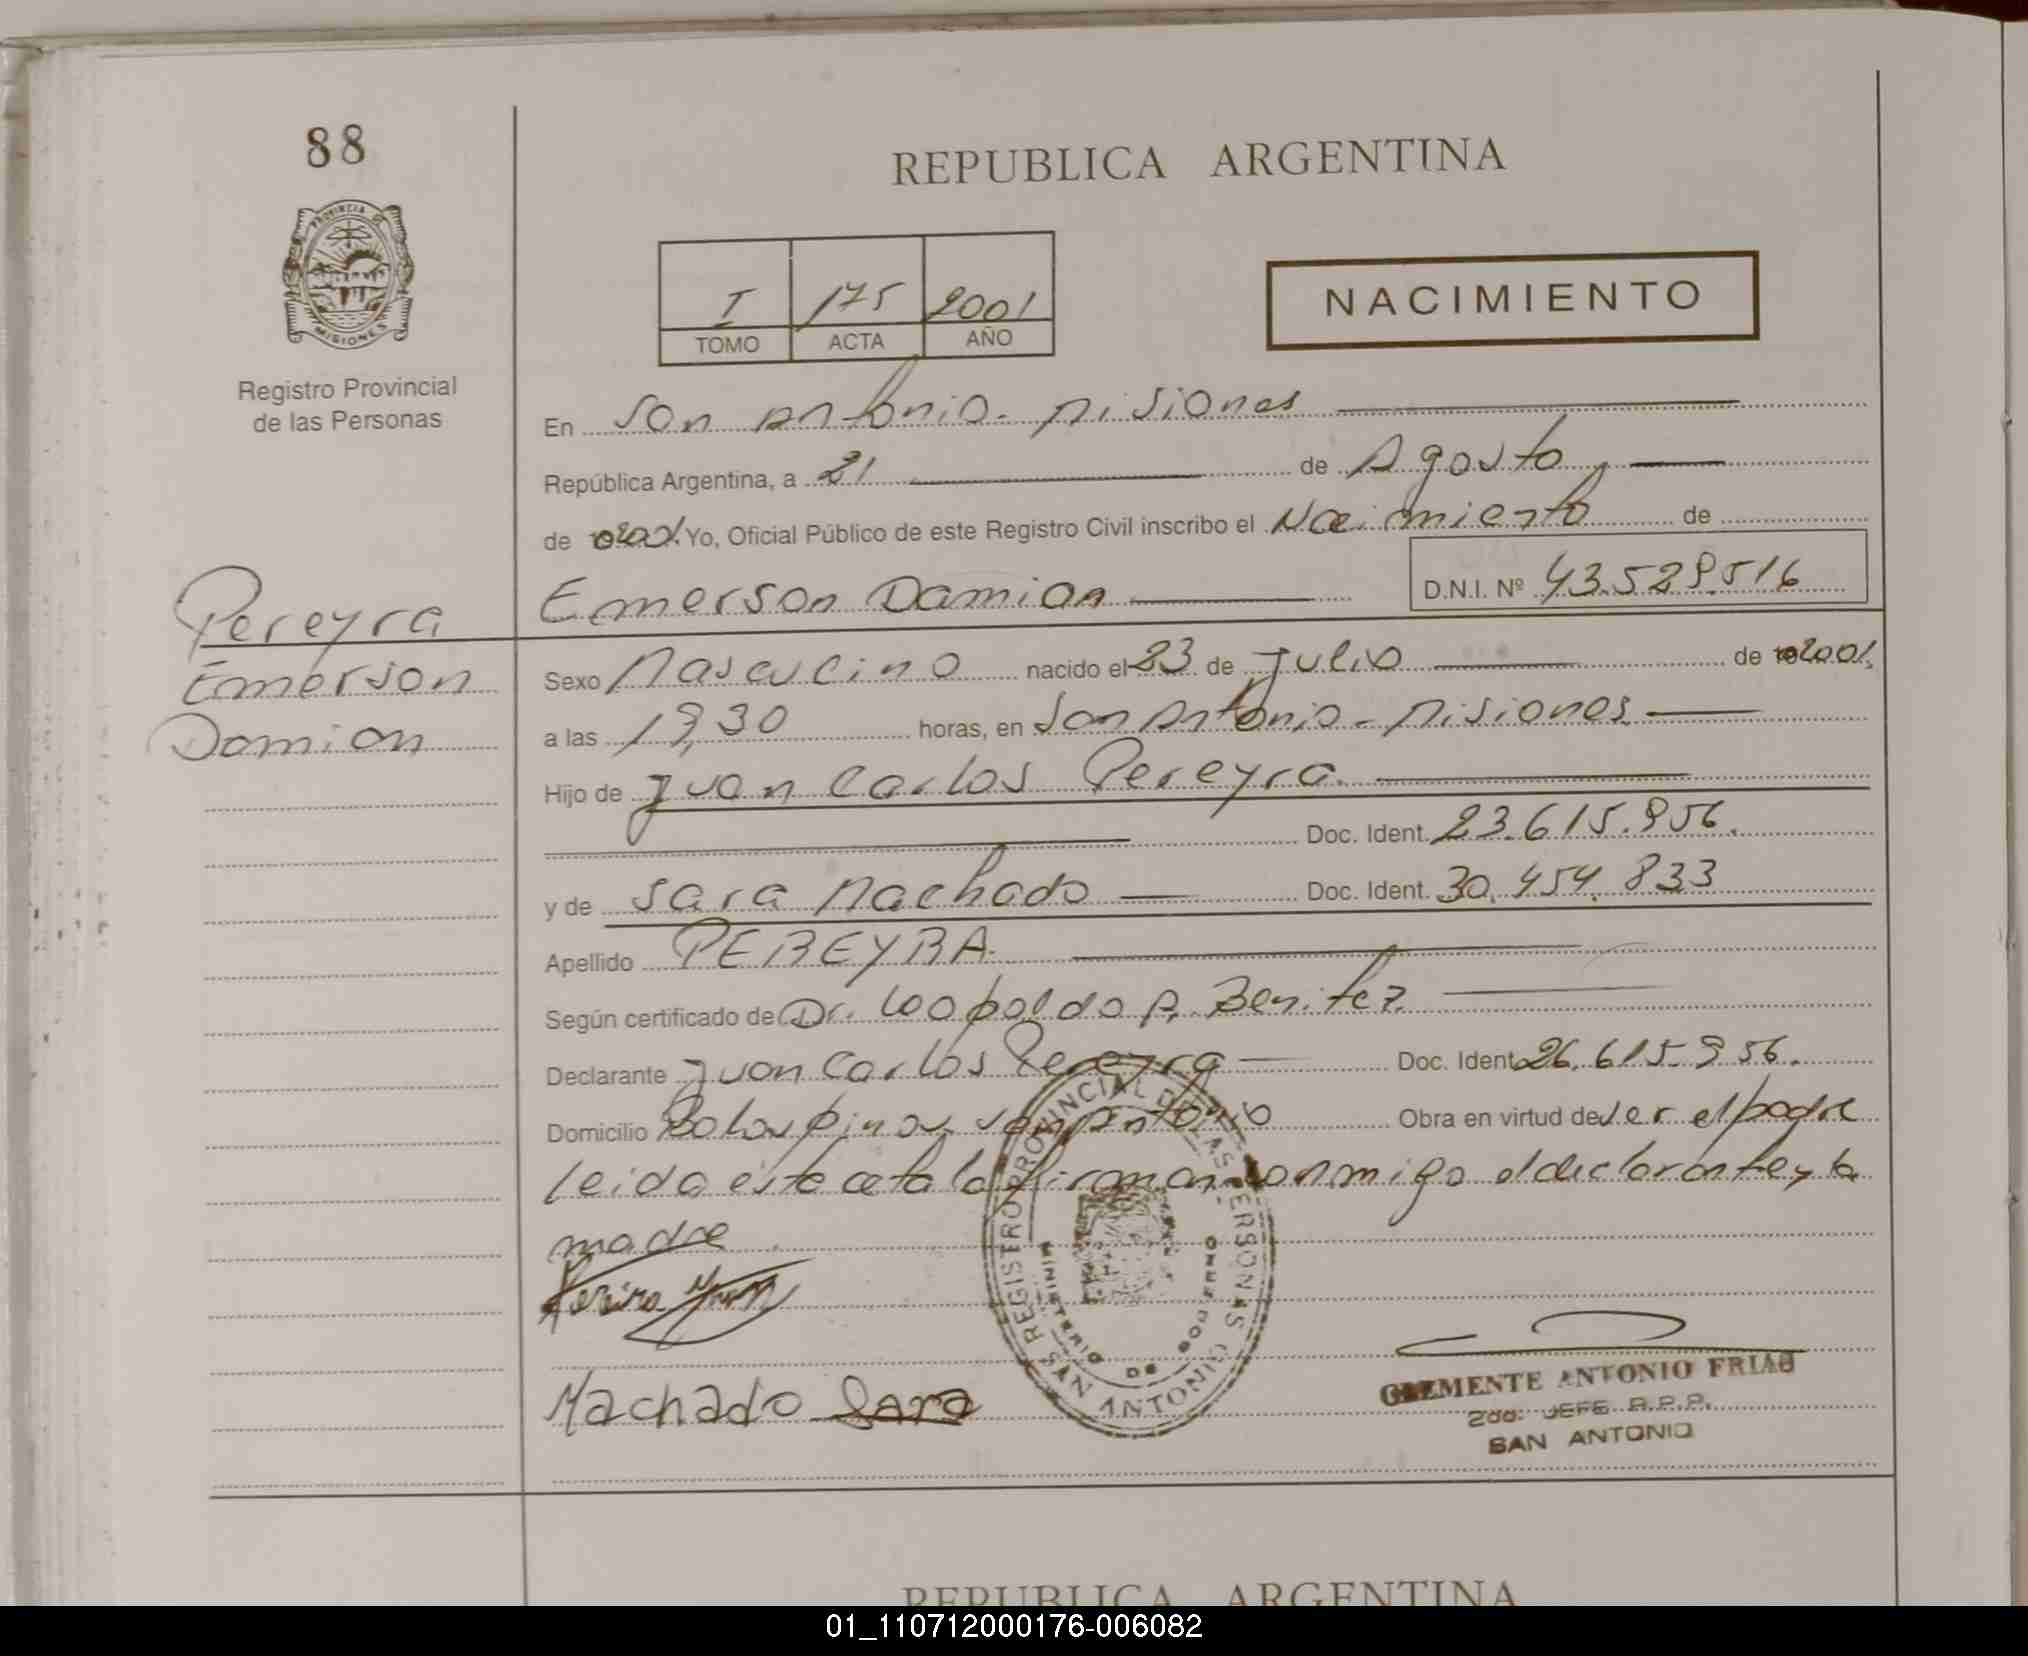 88
REPUBLICA ARGENTINA
PROVINCIA DE
MISIONES
Registro Provincial
de las Personas
I 175 2001
TOMO ACTA AÑO
NACIMIENTO
En San Antonio - Misiones
República Argentina, a 21 de Agosto
de 2001. Yo, Oficial Público de este Registro Civil inscribo el Nacimiento de
Emerson Damian D.N.I. Nº 43.529.516
Pereyra
Emerson
Damian
Sexo Masculino nacido el 23 de Julio de 2001.
a las 19,30 horas, en San Antonio - Misiones
Hijo de Juan Carlos Pereyra.
Doc. Ident. 23.615.956.
y de Sara Machado Doc. Ident. 30.454.833
Apellido PEREYRA.
Según certificado de Dr. Leopoldo A. Benitez.
Declarante Juan Carlos Pereyra Doc. Ident. 26.615.956.
Domicilio B° Los pinos. San Antonio Obra en virtud de ser el padre
leida este acta la firman conmigo el declarante y la
madre.
Pereira Juan
Machado Sara
REGISTRO PROVINCIAL DE LAS PERSONAS
SAN ANTONIO
MINISTERIO DE GOBIERNO
CLEMENTE ANTONIO FRIAS
2do. JEFE R.P.P.
SAN ANTONIO
REPUBLICA ARGENTINA
01_110712000176-006082